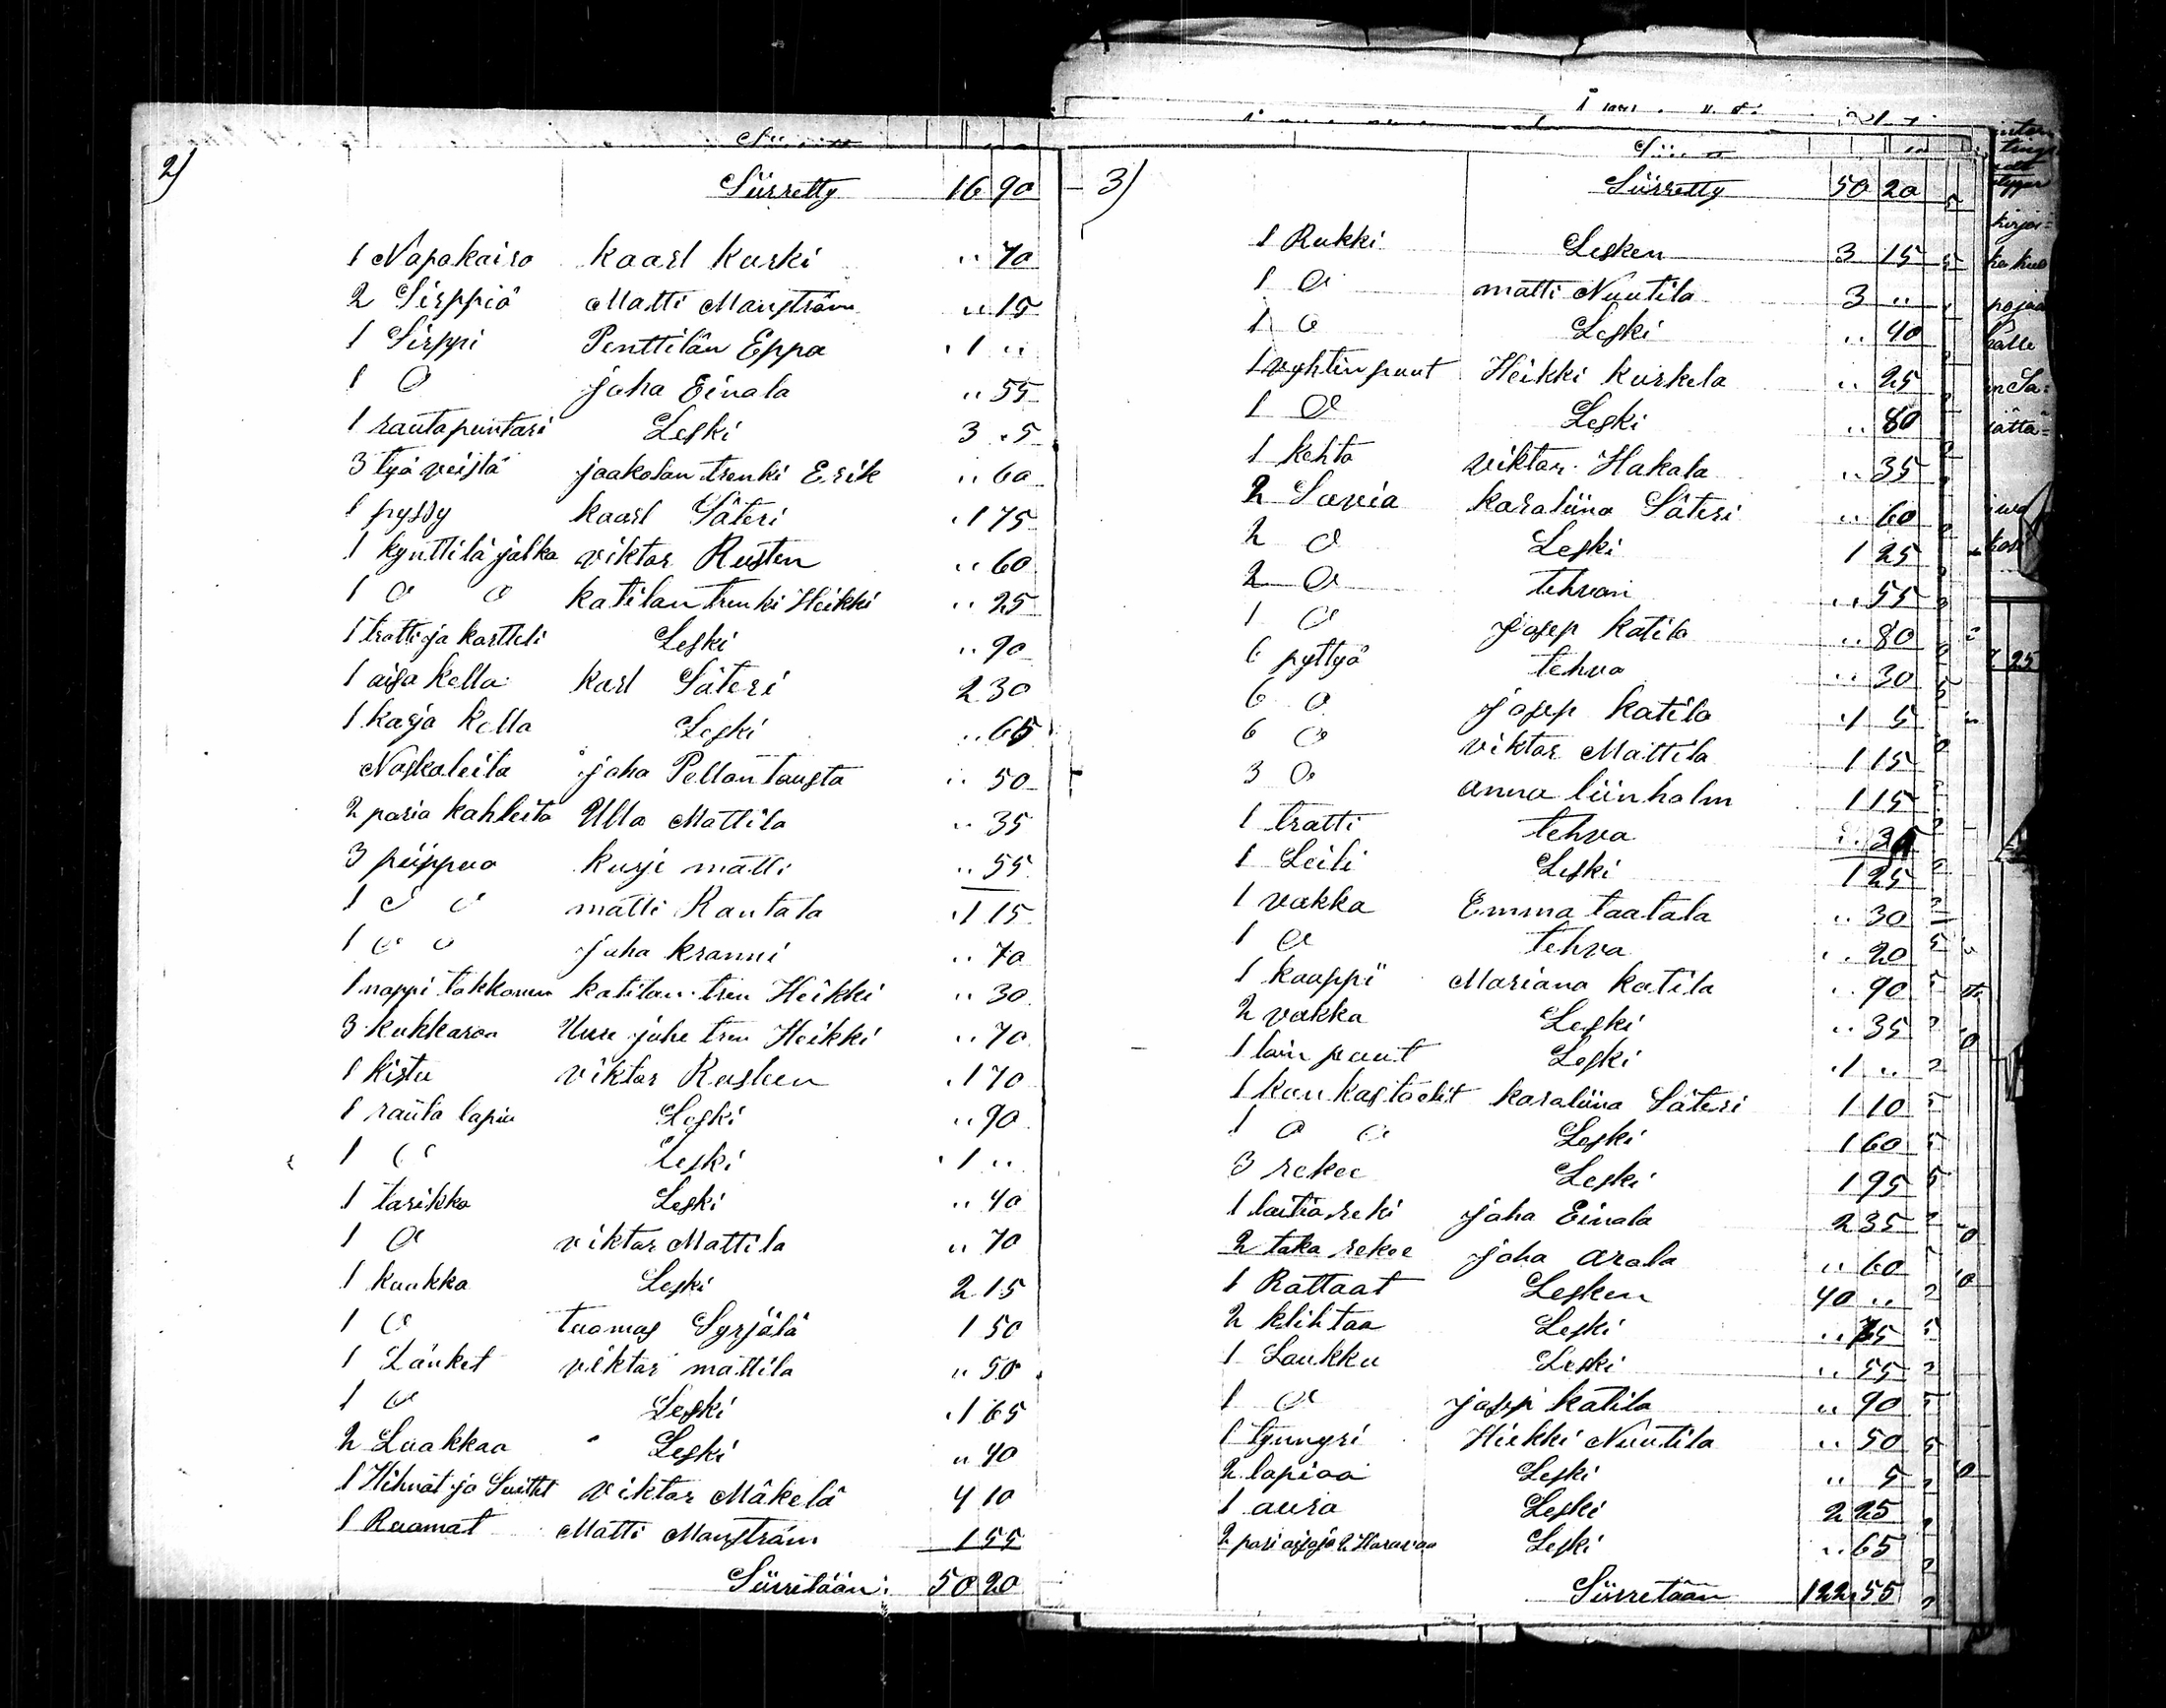 2)
Siirretty 16 90
1 Napakaira kaarl kurki " 70
2 Sirppiä Matti Manström " 15
1 Sirppi Penttilän Eppa 1 "
1 O juha Einala " 55
1 rautapuntari Leski 3 5
3 työ veistä jaakolan trenki Erik " 60
1 pyssy kaarl Säteri 1 75
1 kynttilä jalka viktor Rusten " 60
1 O O katilan trenki Heikki " 25
1 tratti ja kortteli Leski " 90
1 aisa kello karl Säteri 2 30
1 karja kello Leski " 65
Naskaleita juha Pellontausta " 50
2 paria kahleita Ulla Mattila " 35
3 piippua kurje matti " 55
1 O O matti Rautala 1 15
1 O O juha kranni " 70
1 nappi takkonen katilan tren Heikki " 30
3 kukkaroa Uure juhe tren Heikki " 70
1 kistu viktor Rusteen 1 70
1 rauta lapiu Leski " 90
1 O Leski 1 "
1 tarikko Leski " 40
1 O viktor Mattila " 70
1 kuokka Leski 2 15
1 O tuomas Syrjälä 1 50
1 Länket viktor mattila " 50
1 O Leski 1 65
2 Luokkaa Leski " 40
1 Hihnat ja Suittet viktor Mäkelä 4 10
1 Ruomat Matti Manström 1 55
Siirretään: 50 20
3)
Siirretty 50 20
1 Rukki Lesken 3 15
1 O matti Nuutila 3 "
1 O Leski " 40
1 vyhtinpuut Heikki kurkela " 25
1 O Leski " 80
1 kehto viktor Hakala " 35
2 Saavia karaliina Säteri " 60
2 O Leski 1 25
2 O tehvan " 55
1 O josep katila " 80
6 pyttyä tehva " 30
6 O josep katila 1 5
6 O viktor Mattila 1 15
3 O anna liinholm 1 15
1 tratti tehva
1 Leili Leski 1 25
1 vakka Emma taatala " 30
1 O tehva " 20
1 kaappi Mariana katila " 90
2 vakka Leski " 35
1 loin puut Leski 1 "
1 kankastoolit karaliina Säteri 1 10
1 O O Leski 1 60
3 rekee Leski 1 95
1 laitiareki juha Einala 2 35
2 taka rekee juha arola " 60
1 Rattaat Lesken 40 "
2 klihtaa Leski " 75
1 Laukku Leski " 55
1 O josep katila " 90
1 tynnyri Hiekki Nuutila " 50
2 lapiaa Leski " 5
1 aura Leski 2 25
2 pari aisoja 2 Haravaa Leski " 65
Siirretään 122 55